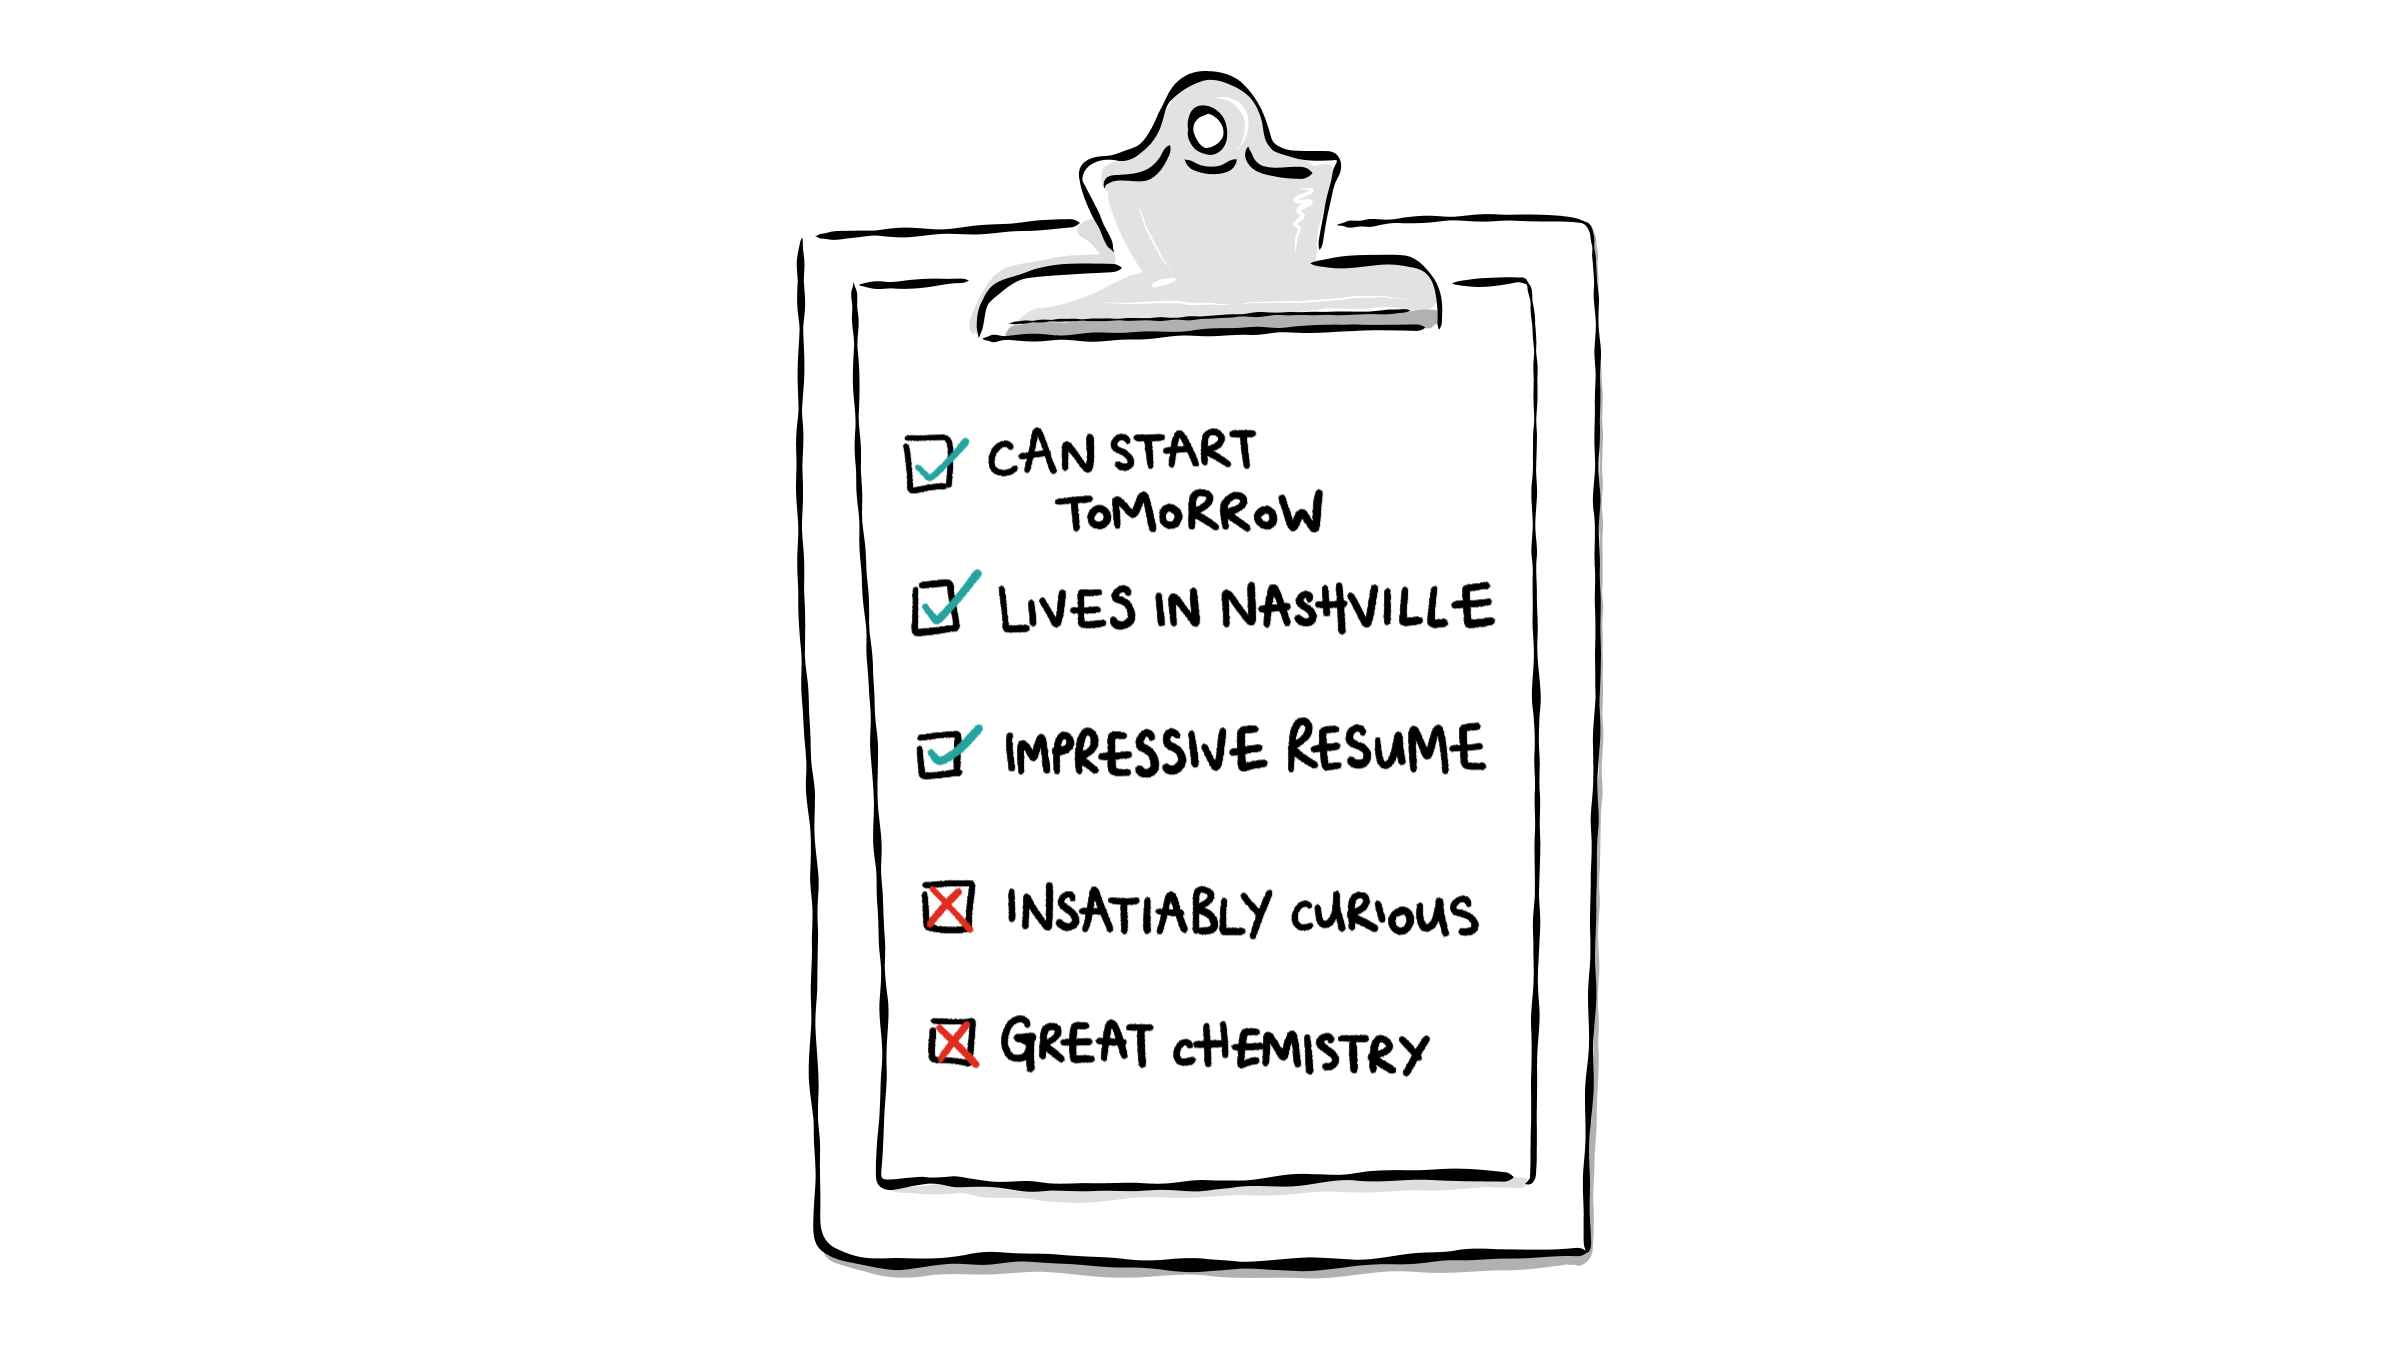 CAN START
TOMORROW
LIVES IN NASHVILLE
IMPRESSIVE RESUME
INSATIABLY CURIOUS
GREAT CHEMISTRY